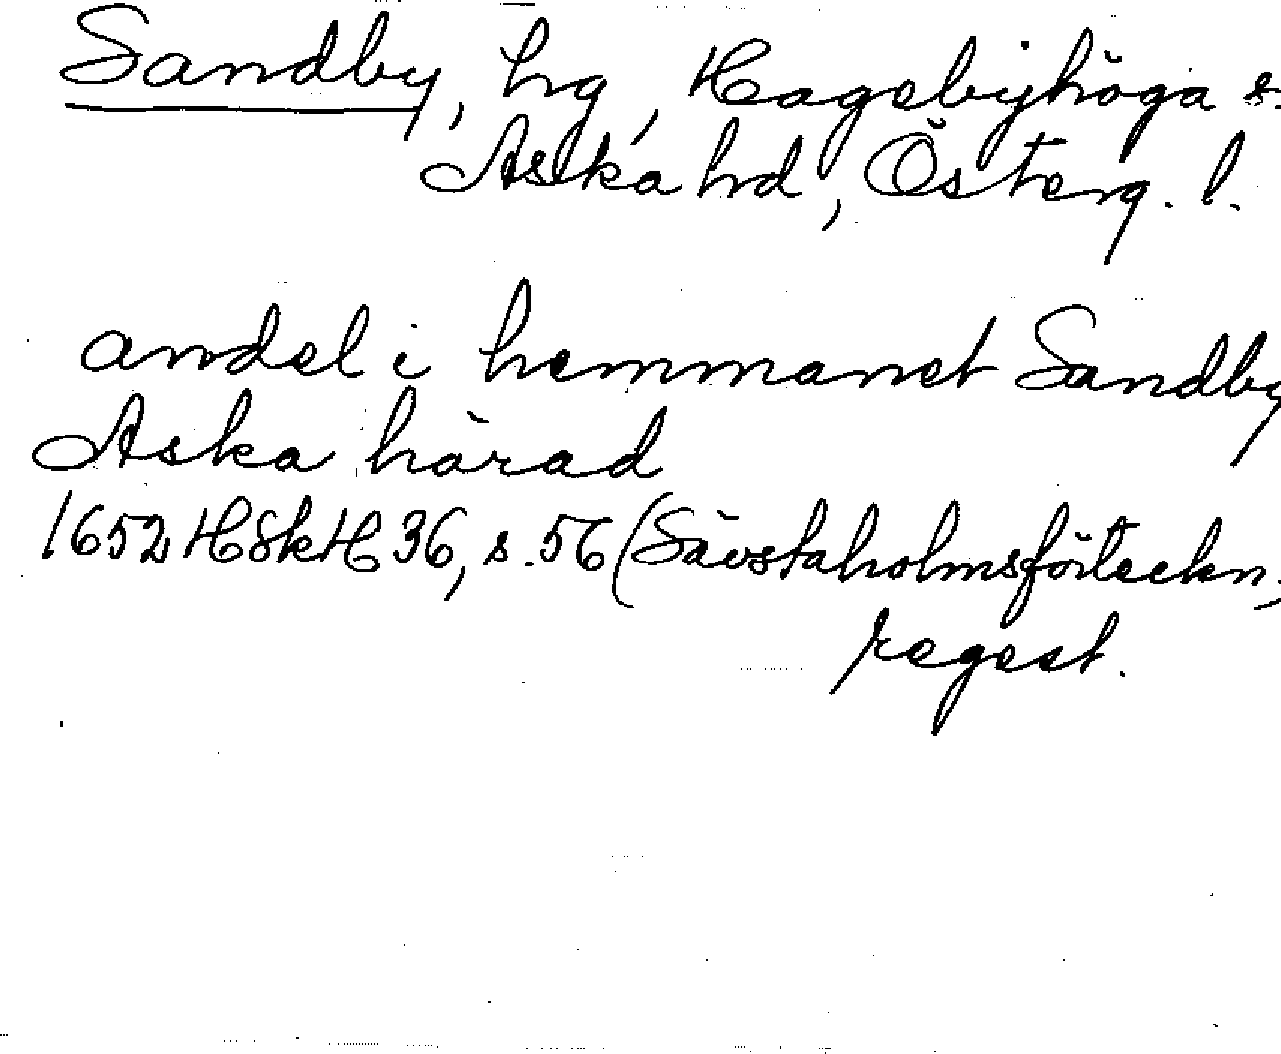 Sandby, hg, Hagebyhöga s.
Aska hd, Österg. l.
andel i hemmanet Sandby
Aska härad
1652 HSkH 36, s. 56 (Sävstaholmsförteckn.,
regest.